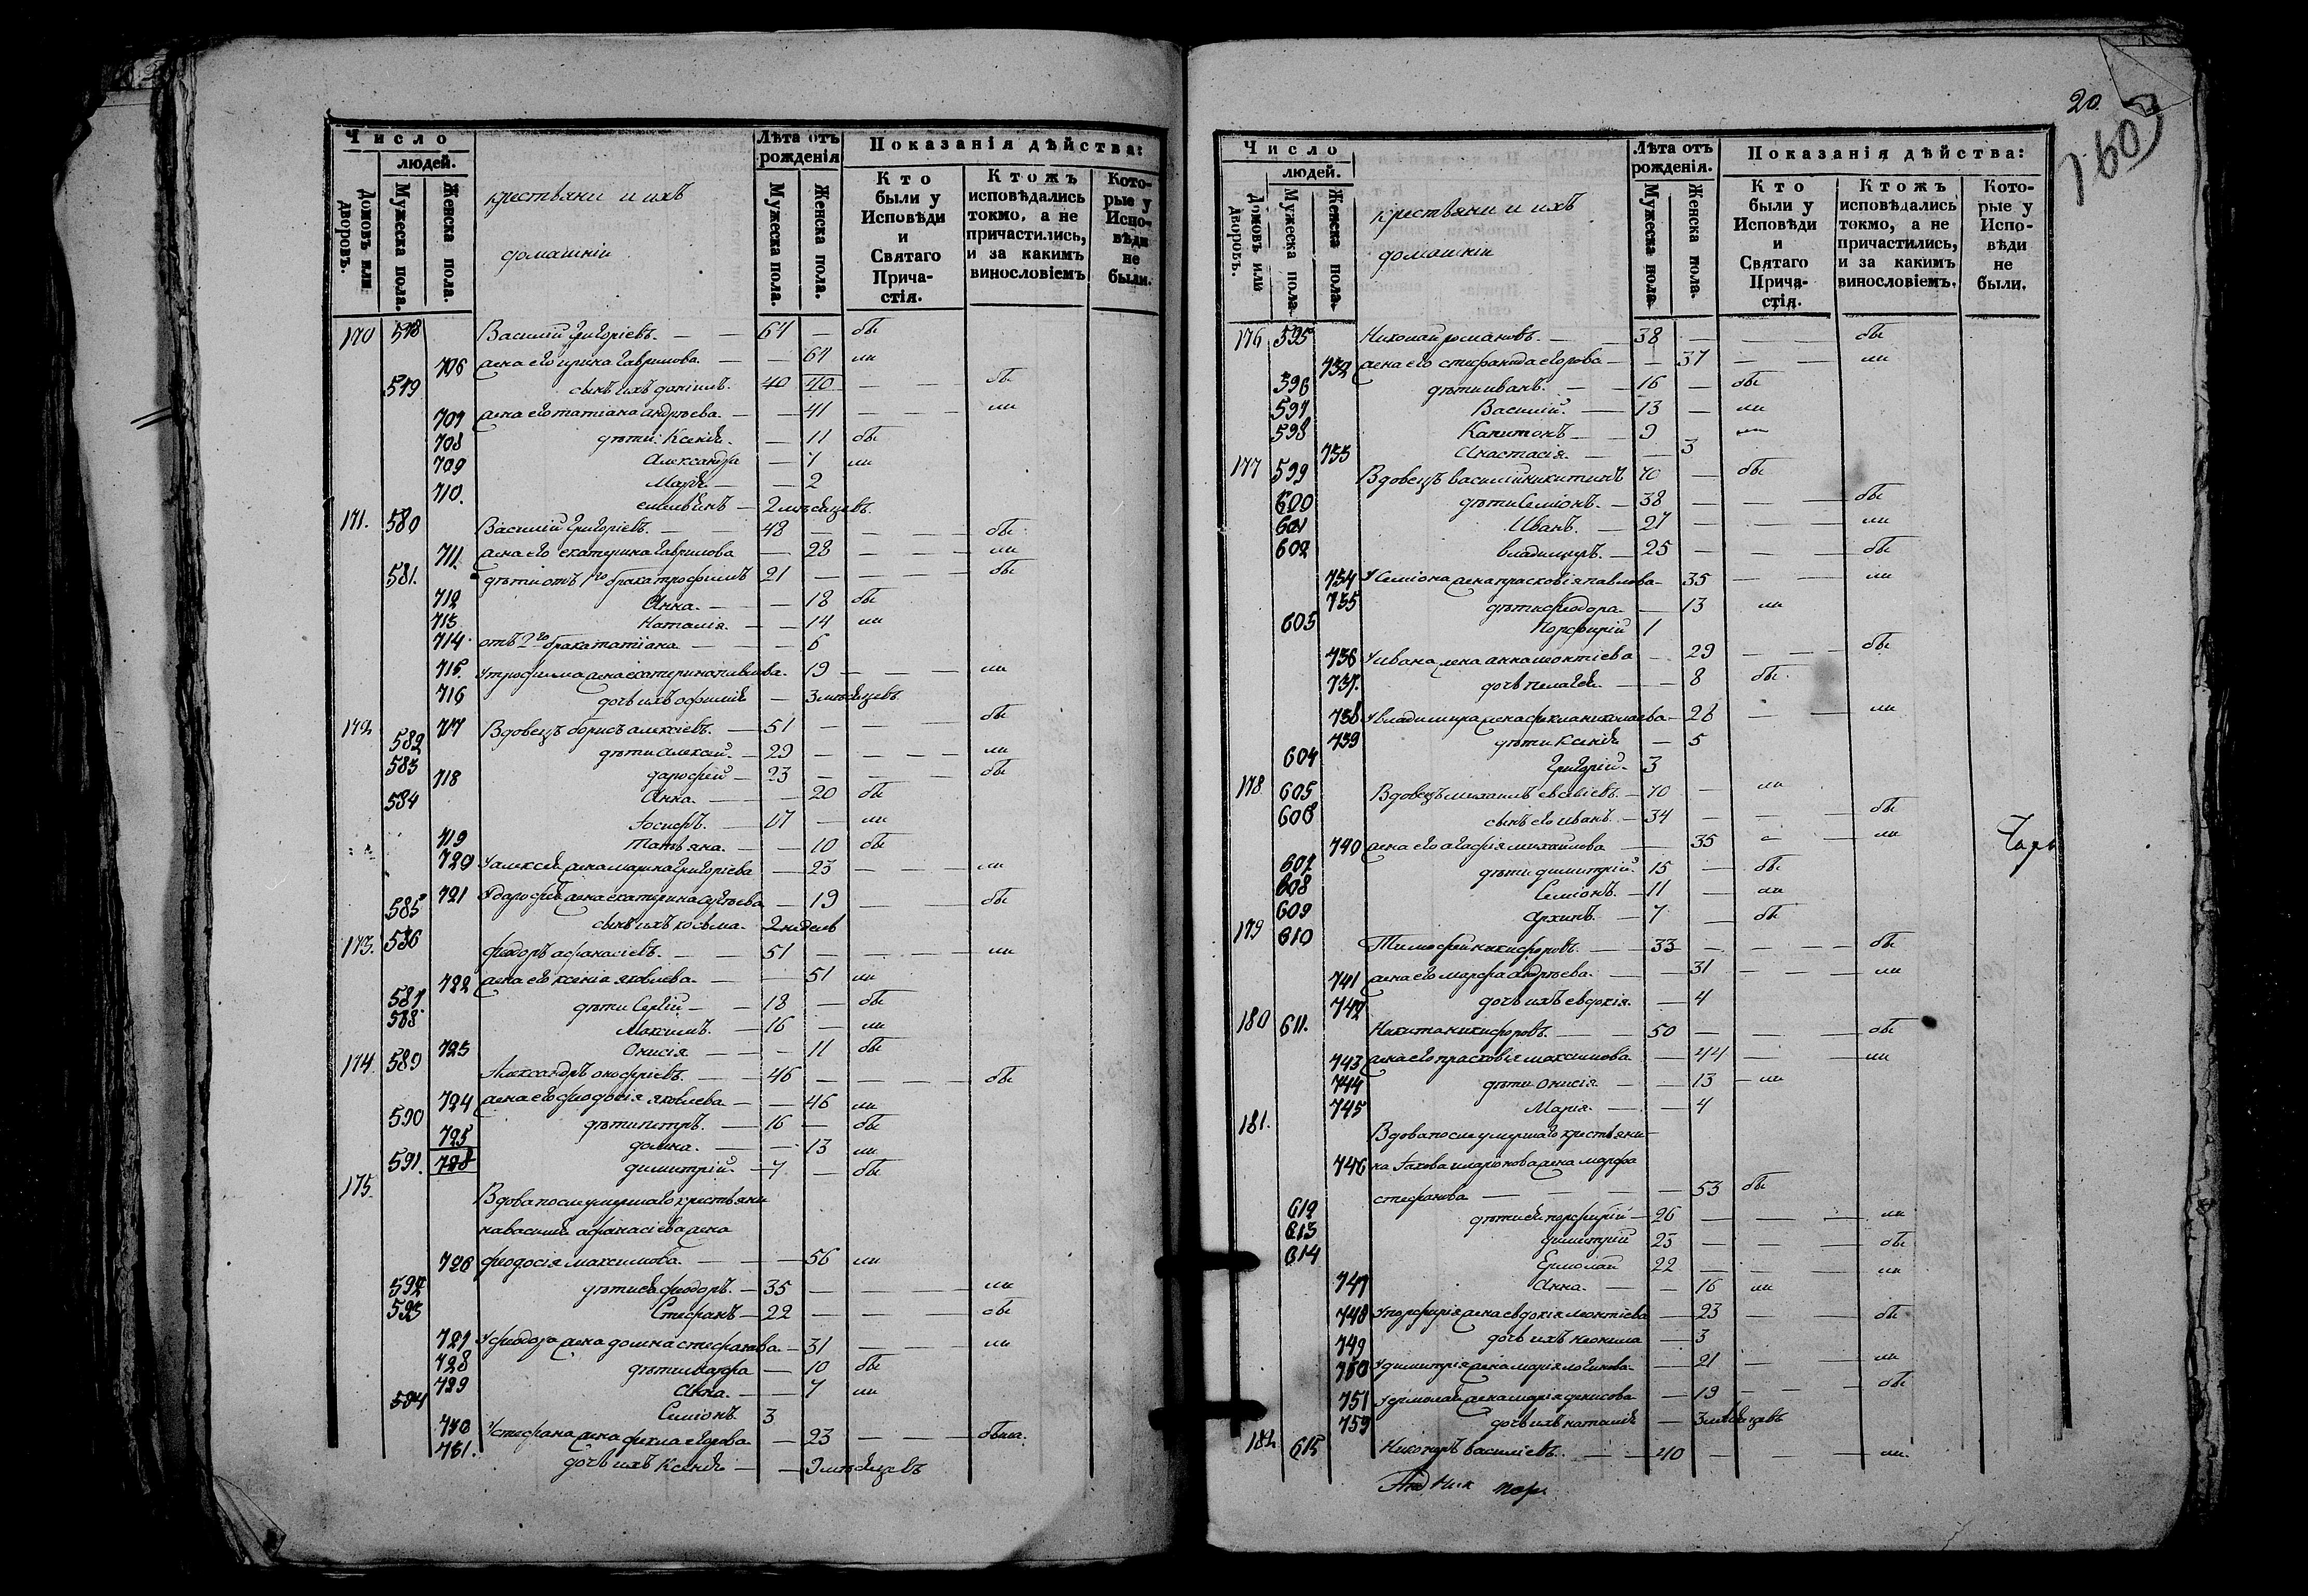 Число
людей.
Домовъ или дворовъ.
Мужеска пола.
Женска пола.
крестьяни и ихъ
домашнiи
Лѣта отъ рожденія
Мужеска пола.
Женска пола.
Показанія дѣйства:
Кто были у Исповѣди и Святаго Прича-стія.
Ктожъ исповѣдались токмо, а не причастились, и за какимъ винословіемъ
Кото-рые у Испо-вѣди не были.
170 578 Василiй Григорiевъ. — 64 — бы
706 жена его ирина Гаврилова. — 64 ли
579 сынъ ихъ данiилъ. 40 40 — — бы
707 жена его татiана андрѣева. — 41 — — ли
708 дѣти: Ксенiя. — 11 бы
709 Александра — 7 ли
710. Марiя — 2
— 2 мѣсяцевъ.
171. 580 Василiй Григорiевъ. — 48 — — бы
711. жена его екатерина Гаврилова — 28 — — ли
581. дѣти отъ 1го брака трофимъ 21 — — — бы
712 Анна. — 18 бы
713 Наталiя. — 14 ли
714 отъ 2го брака татiана. — 6
715. У трофима жена екатерина павлова. — 19 — — ли
716 дочь ихъ офимiя — 3 мѣсяцевъ
172 717 Вдовецъ борисъ алексiевъ. — 51 — — бы
582 дѣти алексѣй. — 29 — — ли
583 718 дарофей — 23 — — бы
584 Анна. — 20 бы
Iосифъ. — 17 — ли
719 татьяна. — 10 бы
720 У алексѣя жена марина Григорiева — 23 — — ли
585 721 У дарофея жена екатерина — 19 — — бы
сынъ ихъ косьма. — 2 недель
173. 586 феодоръ афанасiевъ. — 51 — — ли
722 жена его ксенiя яковлева. — 51 ли
587 дѣти Сергiй — 18 — бы
588 Максимъ. — 16 — ли
723 Онисiя — 11 бы
174. 589 Александръ онофрiевъ. — 46 — — бы
724 жена его феодосiя яковлева — 46 ли
590 дѣти петръ. — 16 — бы
725 домна. — 13 ли
591. 728 димитрiй. — 7 — бы
175. Вдова после умершаго крестьяни
на василiя афанасiева жена
726 феодосiя максимова. — 56 ли
592 дѣти ея феодоръ. — 35 — — ли
593 Стефанъ — 22 — — бы
727 У феодора жена домна стефанова. — 31 — — ли
728 дѣти марфа — 10 бы
729 Анна. — 7 ли
594 Семiонъ 3
730 У стефана жена фекла егорова. — 23 — — была.
731. дочь ихъ Ксенiя — 9 мѣсяцевъ
20.
160
Число
людей.
Домовъ или дворовъ.
Мужеска пола
Женска пола.
крестьяни и ихъ
домашнiи
Лѣта отъ рожденія.
Мужеска пола
Женска пола.
Показанія дѣйства:
Кто были у Исповѣди и Святаго Прича-стія.
Ктожъ исповѣдались токмо, а не причастились, и за какимъ винословіемъ.
Кото-рые у Испо-вѣди не были.
176 595 Николай романовъ. — 38 — — бы
732 жена его стефанида егорова — 37 — — ли
596 дѣти иванъ. — 16 — бы
597 Василiй. — 13 — ли
598 Капитонъ — 9 ли
733 Анастасiя. — 3
177 599 Вдовецъ василiй никитинъ 70 — бы
600 дѣти Семiонъ. — 38 — — бы
601 Иванъ. — 27 — — ли
602 владимиръ. — 25 — — бы
734 У Семiона жена прасковiя павлова — 35 — — ли
735 дѣти феодора. — 13 ли
603 Порфирiй 1
736 У ивана жена анна леонтiева — 29 — — бы
737. дочь пелагея. — 8 бы.
738 У владимира жена фекла николаева — 28 — — ли
739 дѣти Ксенiя — 5
604 Григорiй. 3
178. 605 Вдовецъ михаилъ — 70 — ли
606 сынъ его иванъ. — 34 — — бы
740 жена его агафiя михайлова — 35 — — ли
607 дѣти димитрiй. 15 — бы
608 Семiонъ. — 11 — ли
609 Архипъ. — 7 — бы
179 610 Тимофей никифоровъ. — 33 — — бы
741 жена его марфа андрѣева. — 31 — — ли
742 дочь ихъ евдокiя. — 4
180 611. Никита никифоровъ. — 50 — — бы
743 жена его прасковiя максимова. — 44 — — ли
744 дѣти онисiя — 13 — ли
745 Марiя. — 4
181. Вдова после умершаго крестьяни-
746 на Iакова иларiонова жена марфа
стефанова — 53 бы
612 дѣти ея порфирiй — 26 — — ли
613 димитрiй 23 — — бы
614 Ермолай 22 — — ли
747 Анна. — 16 ли
748 У порфирiя жена евдокiя леонтiева — 23 — — бы
749 дочь ихъ неонила — 3
750 У димитрiя жена марiя логинова. — 21 — — ли
751 У ермолая жена марiя денисова — 19 — — бы
759 дочь ихъ наталiя — 3 мѣсяцевъ
182. 615 Никаноръ василiевъ. — 40 — — ли.